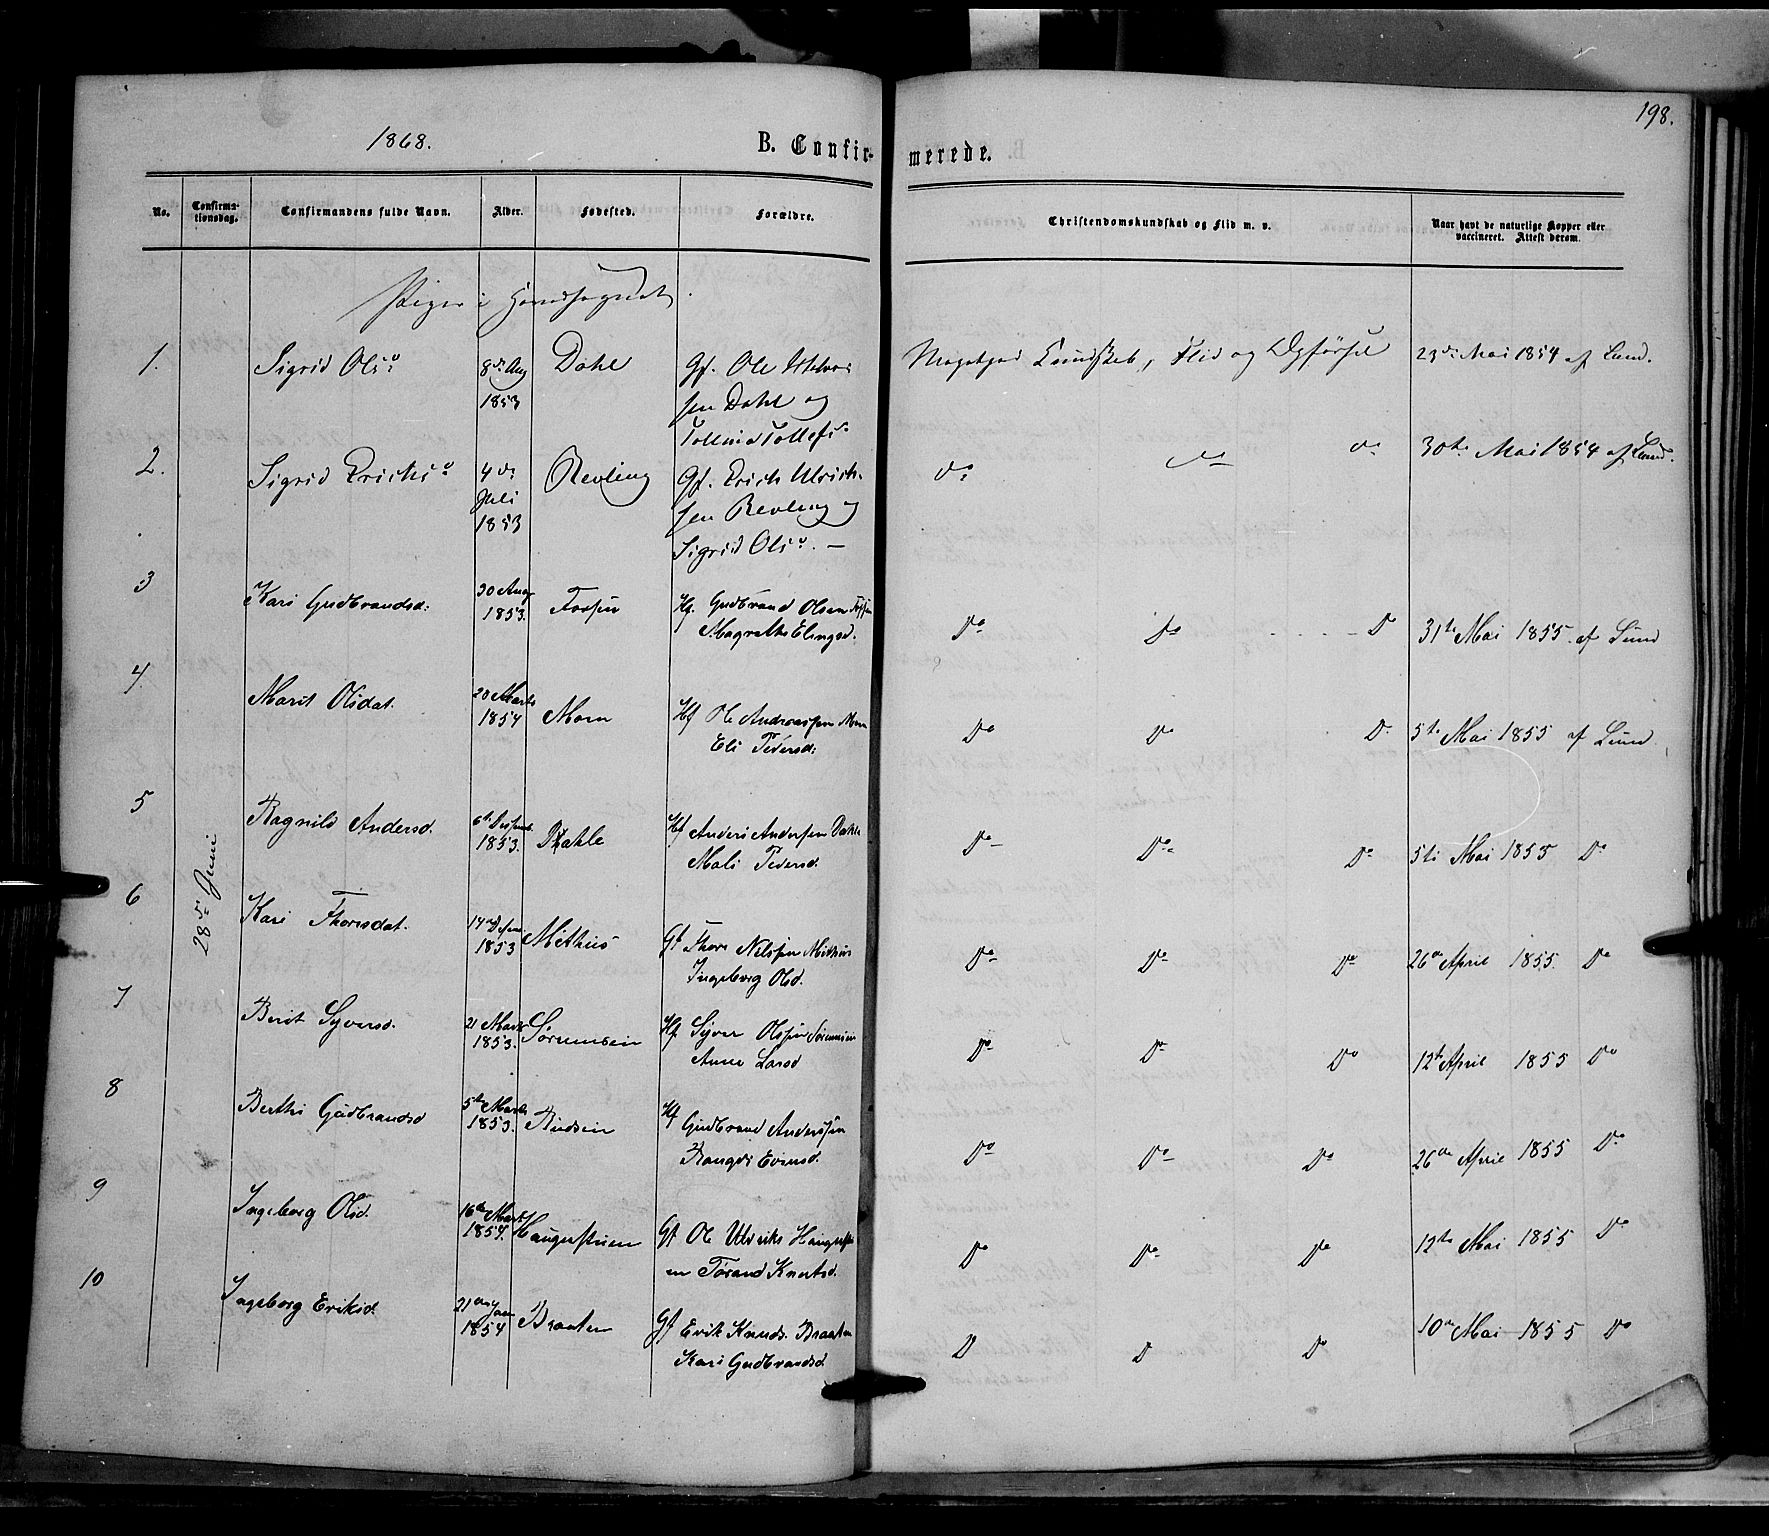 198.
1868.
B. Confir-
merede.
No.
Confirma-
tionsdag.
Confirmandens fulde Navn.
Alder.
Fødested.
Forældre.
Christendomskundskab og Flid m. v.
Naar havt de naturlige Kopper eller
vaccineret. Attest derom.
Piger i Hovedsognet.
28de Juni
1. Sigrid Olsd 8de Aug Dahl Gf. Ole Meget god Kundskab, Flid og Opførsel 23de Mai 1854 af Lund.
1853 sen Dahl og
Tollefsd
2. Sigrid Erichsd 4de Revling Gf. Erich Ulrich- do do do 30te Mai 1854 af Lund.
Juli sen Revling og
1853 Sigrid Olsd. —
3 Kari Gudbrandsd: 30 Aug Hf. Gudbrand Olsen Do Do D 31te Mai 1855. af Lund
1853. Magrethe Elingsd.
4. Marit Olsdat. 20 Marts Moen Hf Ole Andreassen Moen Do Do D. 5te Mai 1855 af Lund.
1854 Eli Pedersd:
5 Ragnild Andersd. 6te Desemb. Dahle Hf Anders Andersen Dahle Do Do Do 5te Mai 1855 Do
1853. Mali Pedersd.
6 Kari Thorsdat. 14de Desem. Methus Gf Thor Nilssen Methus Do Do Do 26de April 1855. Do
1853 Ingeborg Olsd.
7 Berit Syversd. 21 Marts Sørumseie Hf. Syver Olssen Do Do Do 12te April 1855 Do
1853. Anne Larsd
8 Berthe Gudbrandsd 5te Marts Hf Gudbrand Anderssen Do Do Do 26de April 1855 Do
1853. Rangdi
9 Ingeborg Olsd. 16de Marts Haugerstuen Gf Ole Ulriks. Do Do Do 12te Mai 1855 Do
1854. en Torand Knutsd.
10 Ingeborg Eriksd. 21de Jan Braaten Gf Erik Knuds. Braaten D D Do 10de Mai 1855 Do
1854 Kari Gudbrandsd.